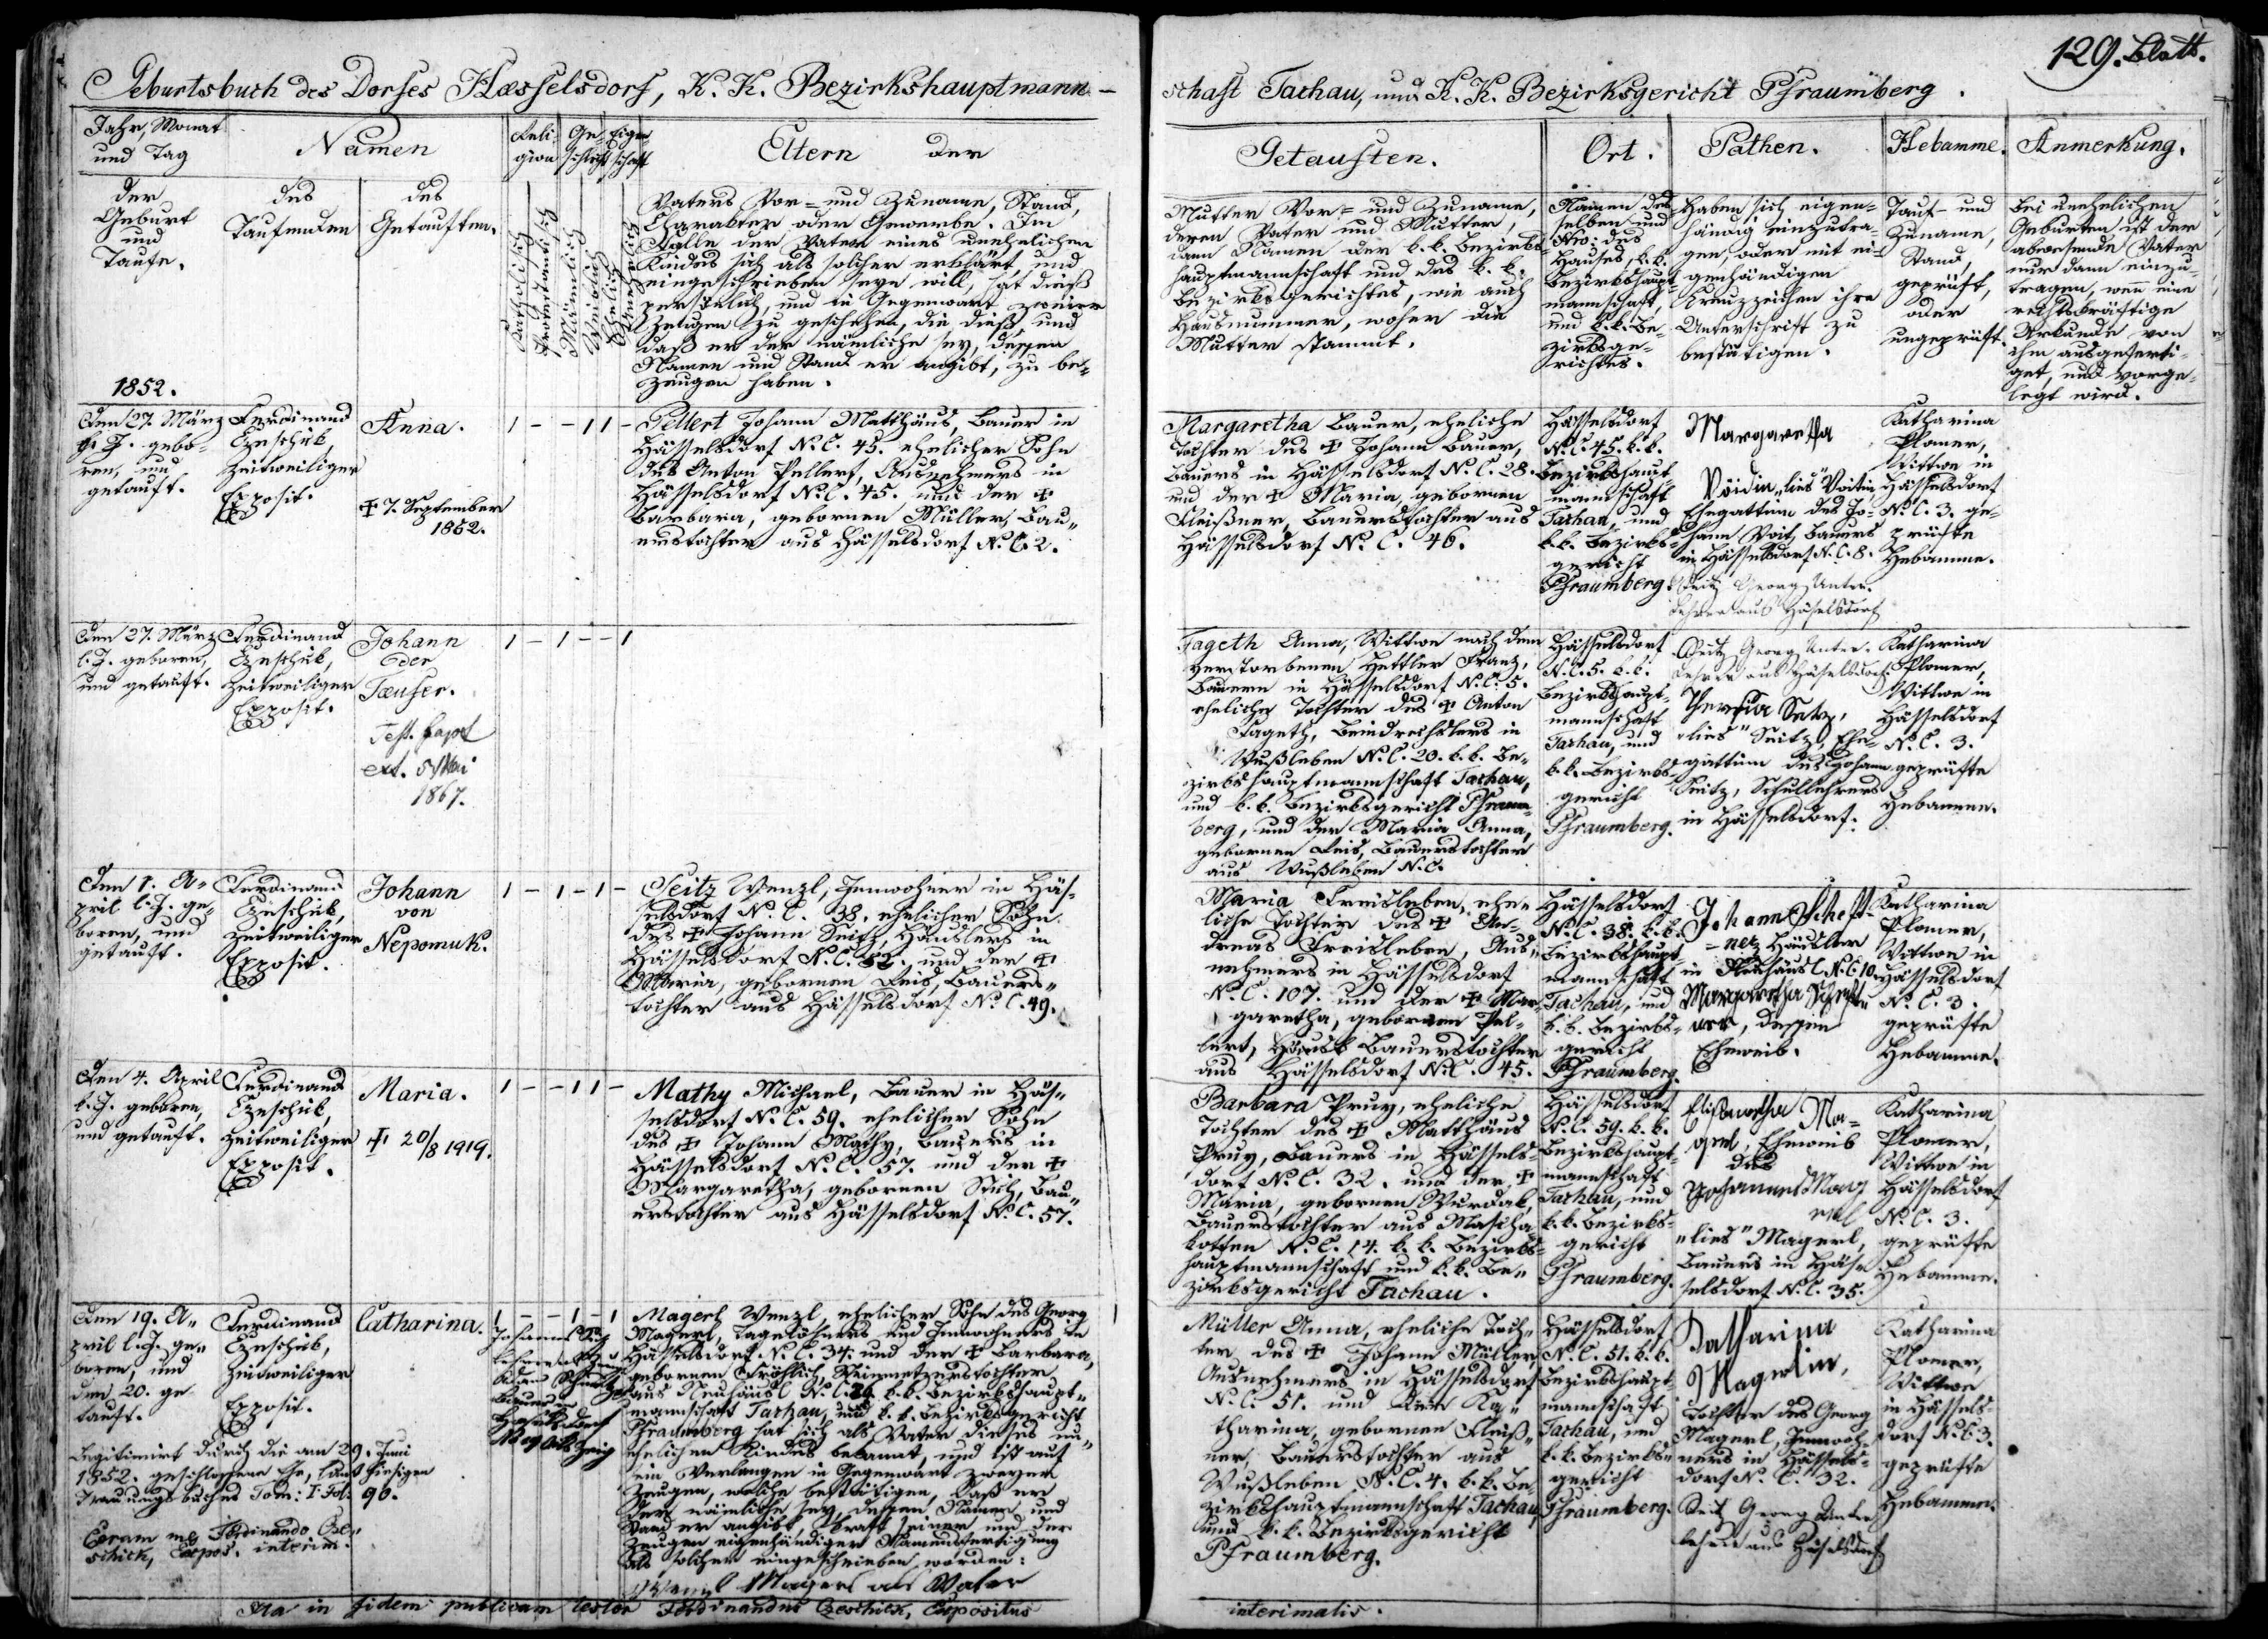 129. Blatt.
Geburtsbuch des Dorfes Hæsselsdorf, K. K. Bezirkshauptmann-
schaft Tachau, und K. K. Bezirksgericht Pfraumberg.
Jahr, Monat und Tag
Namen
Religion
Geschlecht
Eigenschaft
Eltern der
Getauften.
Ort.
Pathen.
Hebamme.
Anmerkung.
der
Geburt
und
Taufe.
des
Taufenden
des
Getauften.
Katholisch
Protestantisch
Männlich
Weiblich
Ehelich
Unehelich
Vaters Vor- und Zuname, Stand,
Charakter oder Gewerbe. Im
Falle der Vater eines unehelichen
Kindes sich als solcher erklärt, und
eingeschrieben seyn will, hat dieß
persönlich, und in Gegenwart zweier
Zeugen zu geschehen, die dieß, und
daß er der nämliche sey, dessen
Namen und Stand er angibt, zu be-
zeugen haben.
Mutter Vor- und Zuname,
deren Vater und Mutter,
dann Namen der k. k. Bezirks-
hauptmannschaft und des k. k.
Bezirksgerichtes, wie auch
Hausnummer, woher die
Mutter stammt.
Namen des-
selben und
Nro: des
Hauses, k. k.
Bezirkshaupt-
mannschaft,
und k. k. Be-
zirksge-
richtes.
Haben sich eigen-
händig einzutra-
gen, oder mit ei-
genhändigem
Kreuzzeichen ihre
Unterschrift zu
bestätigen.
Tauf- und
Zuname,
Stand,
geprüft,
oder
ungeprüft.
Bei unehelichen
Geburten ist der
abwesende Vater
nur dann einzu-
tragen, wenn eine
rechtskräftige
Urkunde von
ihm ausgeferti-
get, und vorge-
legt wird.
1852.
Den 27. März
l. J. gebo-
ren, und
getauft.
Ferdinand
Czeschik,
zeitweiliger
Exposit.
Anna.
✠ 7. September
1852.
1 - - 1 1 -
Pellert Johann Matthäus, Bauer in
Hässelsdorf N. C. 45. ehelicher Sohn
des Anton Pellert, Ausnehmers in
Hässelsdorf N. C. 45. und der ✠
Barbara, gebornen Müller, Bau-
erstochter aus Hässelsdorf N. C. 2.
Margaretha Bauer, eheliche
Tochter des ✠ Johann Bauer,
Bauers in Hässelsdorf N. C. 28.
und der ✠ Maria, gebornen
Fleißner, Bauerstochter aus
Hässelsdorf N. C. 46.
Hässelsdorf
N. C. 45. k. k.
Bezirkshaupt-
mannschaft
Tachau, und
k. k. Bezirks-
gericht
Pfraumberg.
Margaretha
Voidin „lies" Voitin
Ehegattin des Jo-
hann Voit, Bauers
in Hässelsdorf N. C. 8.
Seitz Georg Unter-
lehrer aus Häselsdorf
Katharina
Plomer,
Wittwe in
Hässelsdorf
N. C. 3. ge-
prüfte
Hebamme.
Den 27. März
l. J. geboren,
und getauft.
Ferdinand
Czeschik,
zeitweiliger
Exposit.
Johann
der
Tæufer.
ext. 5 Mai
1867.
1 - 1 - - 1
Fageth Anna, Wittwe nach dem
verstorbenen Hettler Franz,
Bauern in Hässelsdorf N. C. 5.
eheliche Tochter des ✠ Anton
Fageth, Beindrechslers in
Wußleben N. C. 20. k. k. Be-
zirkshauptmannschaft Tachau,
und k. k. Bezirksgericht Pfraum-
berg, und der Maria Anna,
gebornen Leis, Bauerstochter
aus Wußleben N. C.
Hässelsdorf
N. C. 5. k. k.
Bezirkshaupt-
mannschaft
Tachau, und
k. k. Bezirks-
gericht
Pfraumberg.
Seitz Georg Unter-
lehrer aus Häselsdorf.
Theresia Setz,
„lies" Seitz, Ehe-
gattin des Johann
Seitz, Schullehrers
in Hässelsdorf.
Katharina
Plomer,
Wittwe in
Hässelsdorf
N. C. 3.
geprüfte
Hebamme.
Den 1. A-
pril l. J. ge-
boren, und
getauft.
Ferdinand
Czeschik,
zeitweiliger
Exposit.
Johann
von
Nepomuk.
1 - 1 - 1 -
Seitz Wenzl, Inwohner in Häs-
selsdorf N. C. 38. ehelicher Sohn
des ✠ Johann Seitz, Häuslers in
Hässelsdorf N. C. 52. und der ✠
Maria, gebornen Leis, Bauers-
tochter aus Hässelsdorf N. C. 49.
Maria Freisleben, ehe-
liche Tochter des ✠ An-
dreas Freisleben, Aus-
nehmers in Hässelsdorf
N. C. 107. und der ✠ Mar-
garetha, gebornen Pel-
lert, Bauerstochter
aus Hässelsdorf N. C. 45.
Hässelsdorf
N. C. 38. k. k.
Bezirkshaupt-
mannschaft
Tachau, und
k. k. Bezirks-
gericht
Pfraumberg.
Johann Scheft-
ner Häusler
in Neuhäusl N. C. 10
Margaretha Scheft-
ner, dessen
Eheweib.
Katharina
Plomer,
Wittwe in
Hässelsdorf
N. C. 3.
geprüfte
Hebamme.
Den 4. April
l. J. geboren,
und getauft.
Ferdinand
Czeschik,
zeitweiliger
Exposit.
Maria.
✠ 20/8 1919.
1 - - 1 1 -
Mathy Michael, Bauer in Häs-
selsdorf N. C. 59. ehelicher Sohn
des ✠ Johann Mathy, Bauers in
Hässelsdorf N. C. 57. und der ✠
Margaretha, gebornen Stich, Bau-
erstochter aus Hässelsdorf N. C. 57.
Barbara Pruy, eheliche
Tochter des ✠ Matthäus
Pruy, Bauers in Hässels-
dorf N. C. 32. und der ✠
Maria, gebornen Wurdak,
Bauerstochter aus Mascha-
kotten N. C. 14. k. k. Bezirks-
hauptmannschaft und k. k. Be-
zirksgericht Tachau.
Hässelsdorf
N. C. 59. k. k.
Bezirkshaupt-
mannschaft
Tachau, und
k. k. Bezirks-
gericht
Pfraumberg.
Elisabetha Ma-
gerl, Eheweib
des
Johannes Mag
erl
„lies" Magerl,
Bauers in Häs-
selsdorf N. C. 35.
Katharina
Plomer,
Wittwe in
Hässelsdorf
N. C. 3.
geprüfte
Hebamme.
Den 19. A-
pril l. J. ge-
boren, und
den 20. ge-
tauft.
Ferdinand
Czeschik,
zeitweiliger
Exposit.
Catharina.
1 - - 1 - 1
Legitimirt durch die am 29. Juni
1852. geschlossene Ehe, laut hiesigen
Trauungsbuches Tom: I. Fol. 90.
Coram me Ferdinando Cze-
schick, Expos. interim.
Bauer in
Haselsdorf
Magerl Wenzl, ehelicher Sohn des Georg
Magerl, Tagelöhners und Inwohners in
Hässelsdorf N. C. 34. und der ✠ Barbara,
gebornen Fröhlich, Steinmetzerstochter
aus Neuhäusl N. C. k. k. Bezirkshaupt-
mannschaft Tachau, und k. k. Bezirksgericht
Pfraumberg hat sich als Vater dieses un-
ehelichen Kindes bekannt, und ist auf
sein Verlangen in Gegenwart zweyer
Zeugen, welche bestättigen, daß er
der nämliche sey, dessen Namen und
Stand er angibt, kraft seiner und der
Zeugen eigenhändiger Namensfertigung
als solcher eingeschrieben worden:
Wenzl Magerl als Vater
Müller Anna, eheliche Toch-
ter des ✠ Johann Müller,
Ausnehmers in Hässelsdorf
N. C. 51. und der Ka-
tharina, gebornen Fleiß-
ner, Bauerstochter aus
Wußleben N. C. 4. k. k. Be-
zirkshauptmannschaft Tachau,
und k. k. Bezirksgericht
Pfraumberg.
Hässelsdorf
N. C. 51. k. k.
Bezirkshaupt-
mannschaft
Tachau, und
k. k. Bezirks-
gericht
Pfraumberg.
Katharina
Magerlin,
Tochter des Georg
Magerl, Inwoh-
ners in Hässels-
dorf N. C. 32.
Seitz Georg Unter-
lehrer aus Häselsdorf
Katharina
Plomer,
Wittwe
in Hässels-
dorf N. C. 3.
geprüfte
Hebamme.
Ita in fidem publicam testor Ferdinandus Czeschick, Expositus
interimalis.